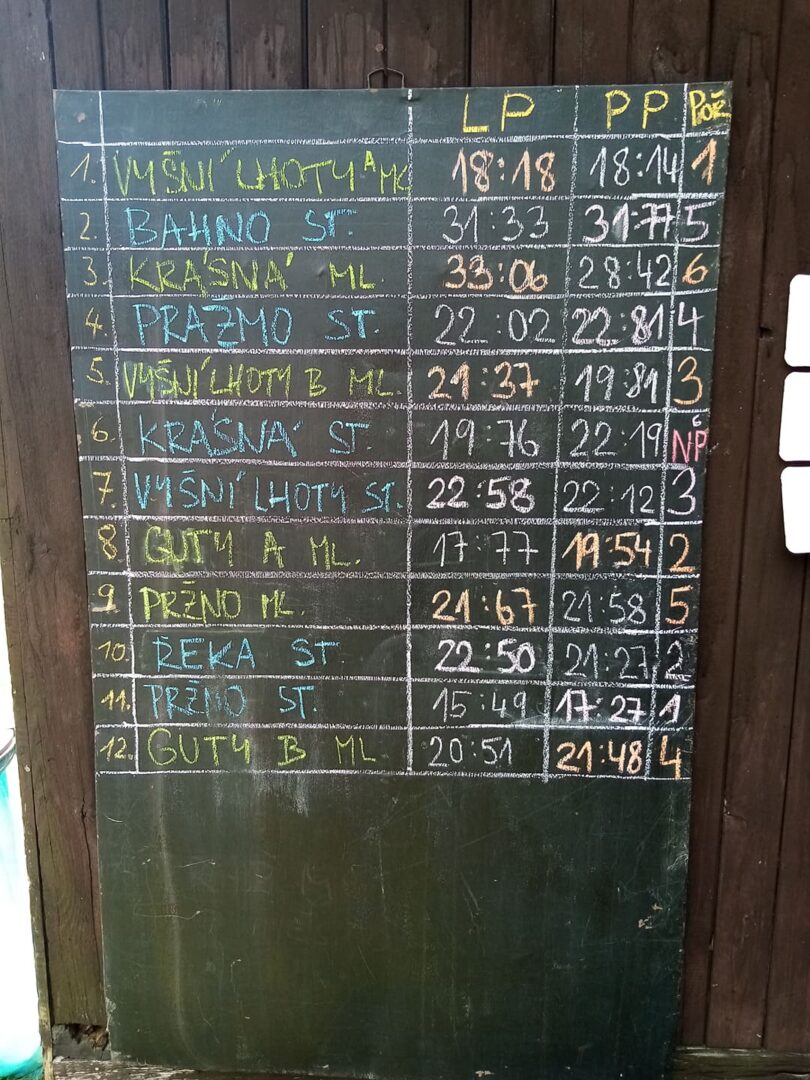 LP PP Poř
1. VYŠNÍ LHOTY A ML 18:18 18:14 1
2. BAHNO ST. 31:33 31:77 5
3. KRÁSNÁ ML. 33:06 28:42 6
4. PRAŽMO ST. 22:02 22:81 4
5. VYŠNÍ LHOTY B ML. 21:37 19:81 3
6. KRÁSNÁ ST. 19:76 22:19 6 NP
7. VYŠNÍ LHOTY ST. 22:58 22:12 3
8. GUTY A ML. 17:77 19:54 2
9. PRŽNO ML. 21:67 21:58 5
10. ŘEKA ST. 22:50 21:27 2
11. PRŽNO ST. 15:49 17:27 1
12. GUTY B ML. 20:51 21:48 4